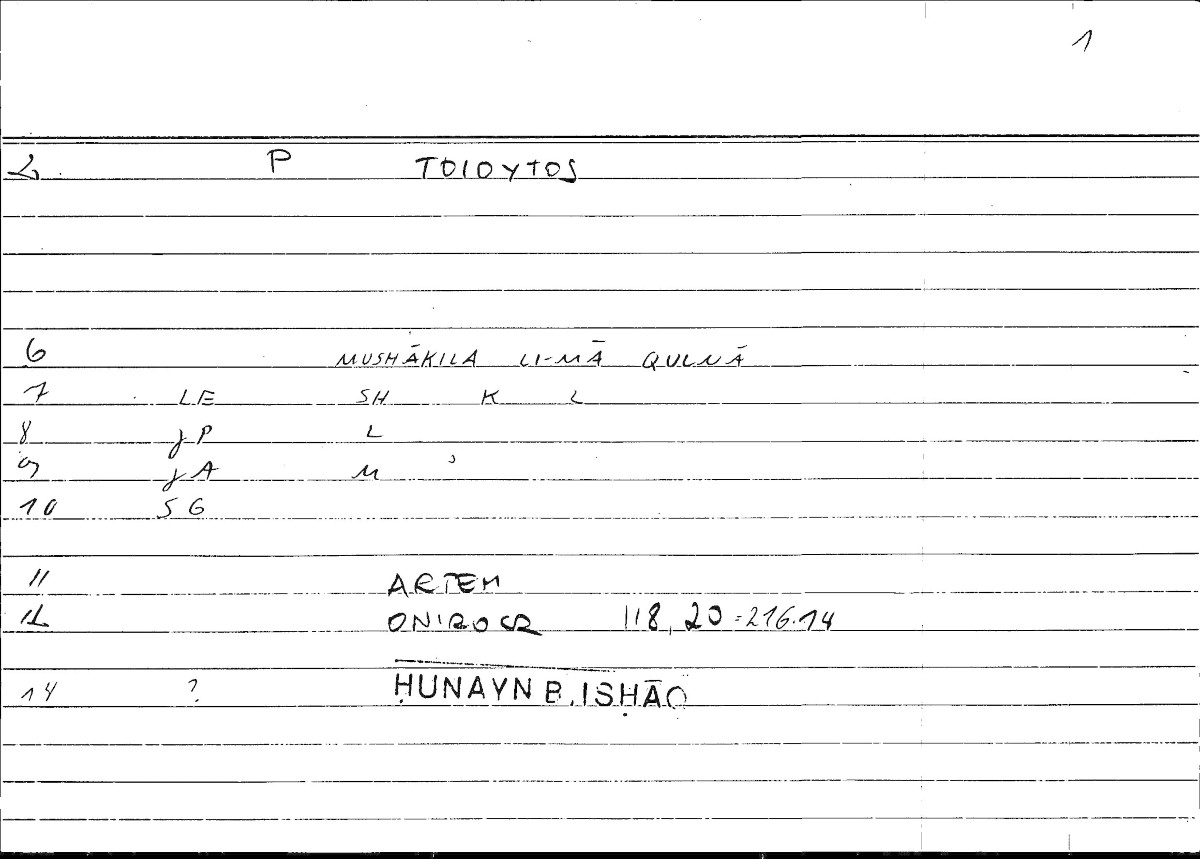 1
2 P TOIOYTOS
6 MUSHĀKILA LI-MĀ QULNĀ
7 LE SH K L
8 gP L
9 gA M
10 SG
11 ARTEM
12 ONIROCR 118,20=216.14
14 ? ḤUNAYN B. ISḤĀQ